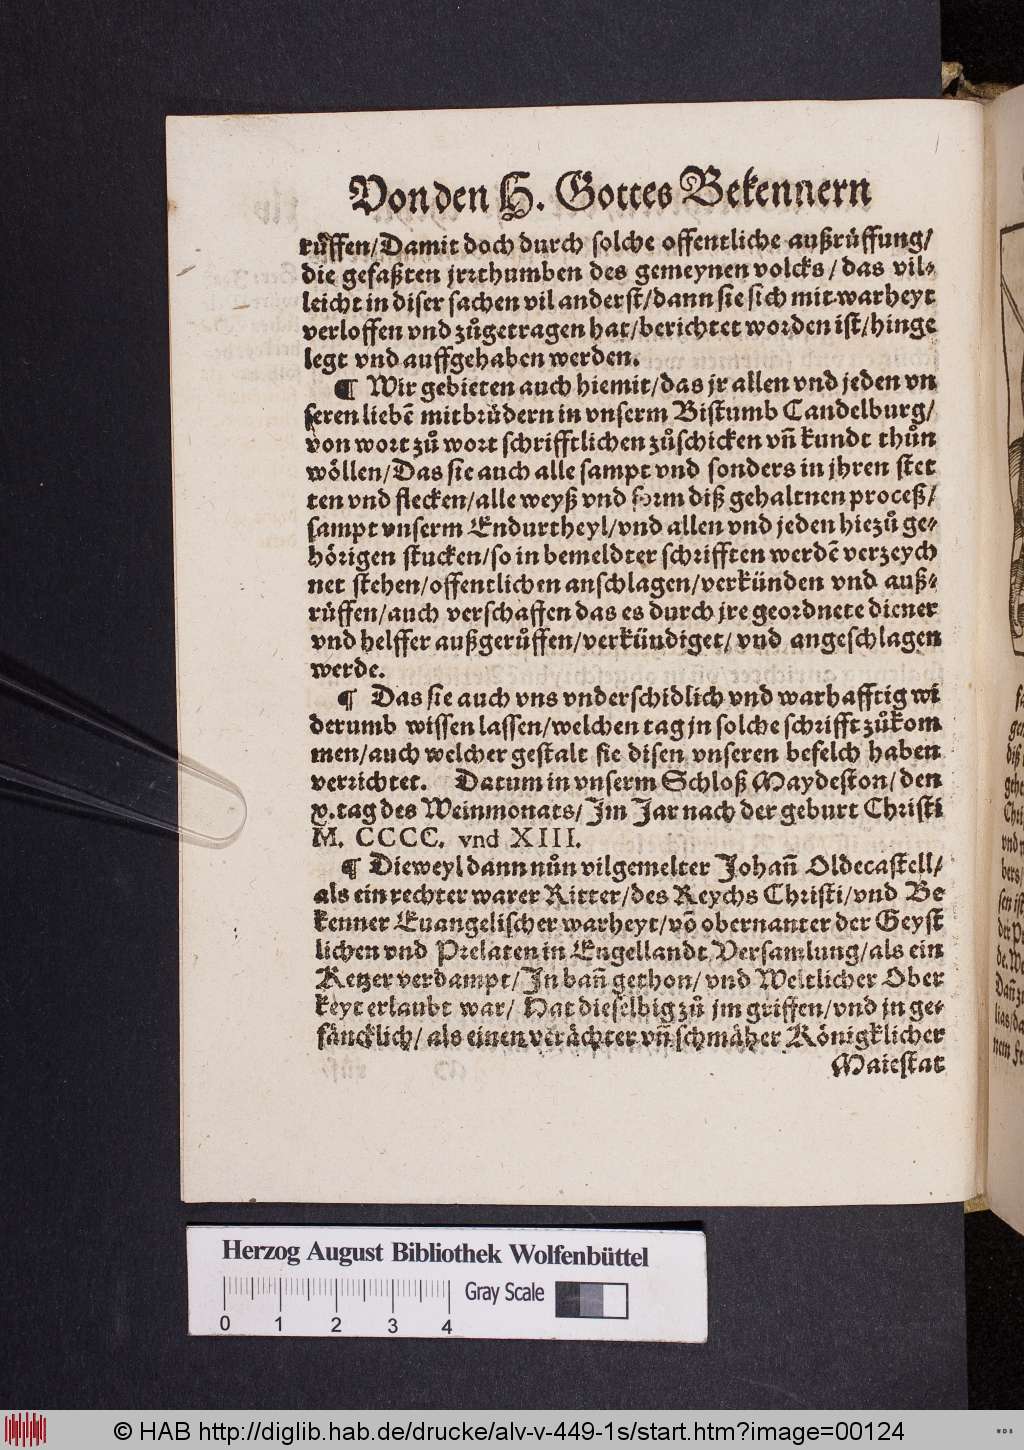 Von den H. Gottes Bekennern
ruͤffen/Damit doch durch solche offentliche außruͤffung/
die gefaßten jrrthumben des gemeynen volcks/das vil-
leicht in diser sachen vil anderst/dann sie sich mit warheyt
verloffen vnd zůgetragen hat/berichtet worden ist/hinge
legt vnd auffgehaben werden.
¶ Wir gebieten auch hiemit/das jr allen vnd jeden vn
seren liebẽ mitbruͤdern in vnserm Bistumb Candelburg/
von wort zů wort schrifftlichen zůschicken vñ kundt thůn
woͤllen/Das sie auch alle sampt vnd sonders in jhren stet
ten vnd flecken/alle weyß vnd form diß gehaltnen proceß/
sampt vnserm Endurtheyl/vnd allen vnd jeden hiezů ge-
hoͤrigen stucken/so in bemeldter schrifften werdẽ verzeych
net stehen/offentlichen anschlagen/verkünden vnd auß-
ruͤffen/auch verschaffen das es durch jre geordnete diener
vnd helffer außgeruͤffen/verkündiget/vnd angeschlagen
werde.
¶ Das sie auch vns vnderschidlich vnd warhafftig wi
derumb wissen lassen/welchen tag jn solche schrifft zůkom
men/auch welcher gestalt sie disen vnseren befelch haben
verrichtet. Datum in vnserm Schloß Maydeston/den
x.tag des Weinmonats/Im Jar nach der geburt Christi
M. CCCC. vnd XIII.
¶ Dieweyl dann nůn vilgemelter Johañ Oldecastell/
als ein rechter warer Ritter/des Reychs Christi/vnd Be
kenner Euangelischer warheyt/võ obernanter der Geyst
lichen vnd Prelaten in Engellandt Versamlung/als ein
Ketzer verdampt/In bañ gethon/vnd Weltlicher Ober
keyt erlaubt war/Hat dieselbig zů jm griffen/vnd jn ge-
faͤncklich/als einen veraͤchter vñ schmaͤher Koͤnigklicher
Maiestat
Herzog August Bibliothek Wolfenbüttel
0 1 2 3 4 Gray Scale
© HAB http://diglib.hab.de/drucke/alv-v-449-1s/start.htm?image=00124